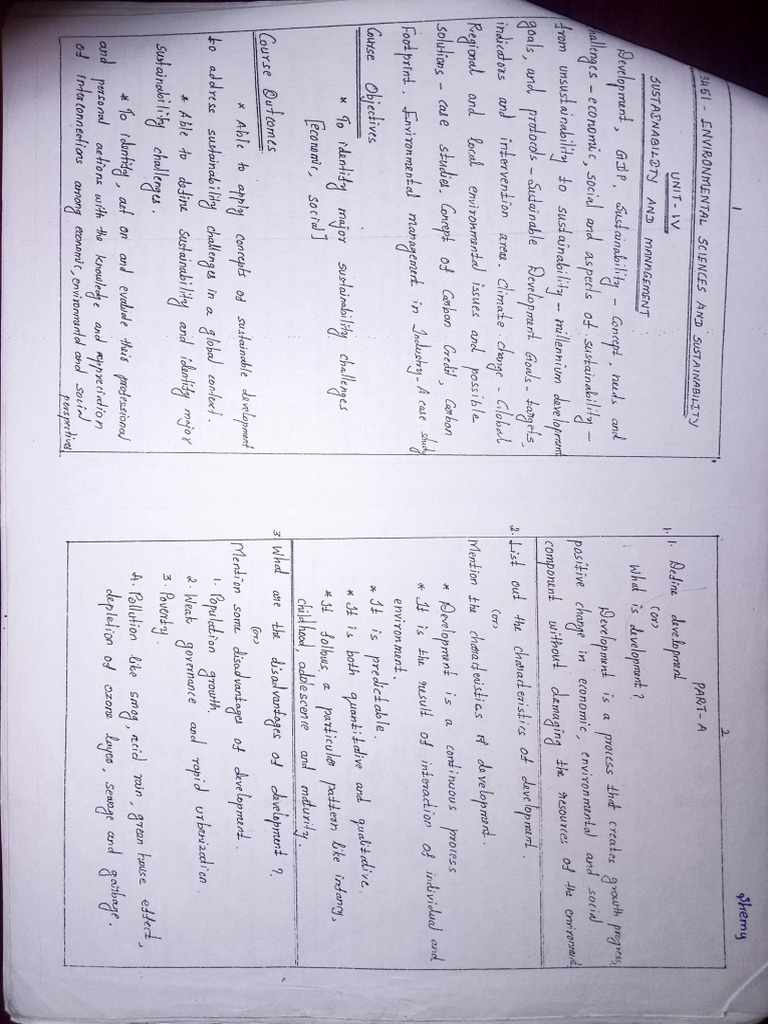 1
3451 - ENVIRONMENTAL SCIENCES AND SUSTAINABILITY
UNIT-IV
SUSTAINABILITY AND MANAGEMENT
Development, GDP, Sustainability - Concept, needs and
challenges - economic, social and aspects of sustainability -
from unsustainability to sustainability - millennium development
goals, and protocols - Sustainable Development Goals - targets,
indicators and intervention areas. Climate change - Global
Regional and local environmental issues and possible
solutions - case studies. Concept of Carbon Credit, Carbon
Footprint. Environmental management in Industry - A case study
Course Objectives
* To identify major sustainability challenges
[economic, social]
Course Outcomes
* Able to apply concepts of sustainable development
to address sustainability challenges in a global context.
* Able to define sustainability and identify major
sustainability challenges.
* To identify, act on and evaluate their professional
and personal actions with the knowledge and appreciation
of interconnections among economic, environmental and social
perspectives
Shemy
2
PART-A
1. 1. Define development
(or)
What is development?
Development is a process that creates growth progress,
positive change in economic, environmental and social
component without damaging the resources of the environment
2. List out the characteristics of development.
(or)
Mention the characteristics of development.
* Development is a continuous process
* It is the result of interaction of individual and
environment.
* It is predictable.
* It is both quantitative and qualitative.
* It follows a particular pattern like infancy,
childhood, adolescence and maturity.
3 What are the disadvantages of development?
(or)
Mention some disadvantages of development.
1. Population growth
2. Weak governance and rapid urbanization.
3. Poverty.
4. Pollution like smog, acid rain, green house effect,
depletion of ozone layer, sewage and garbage.